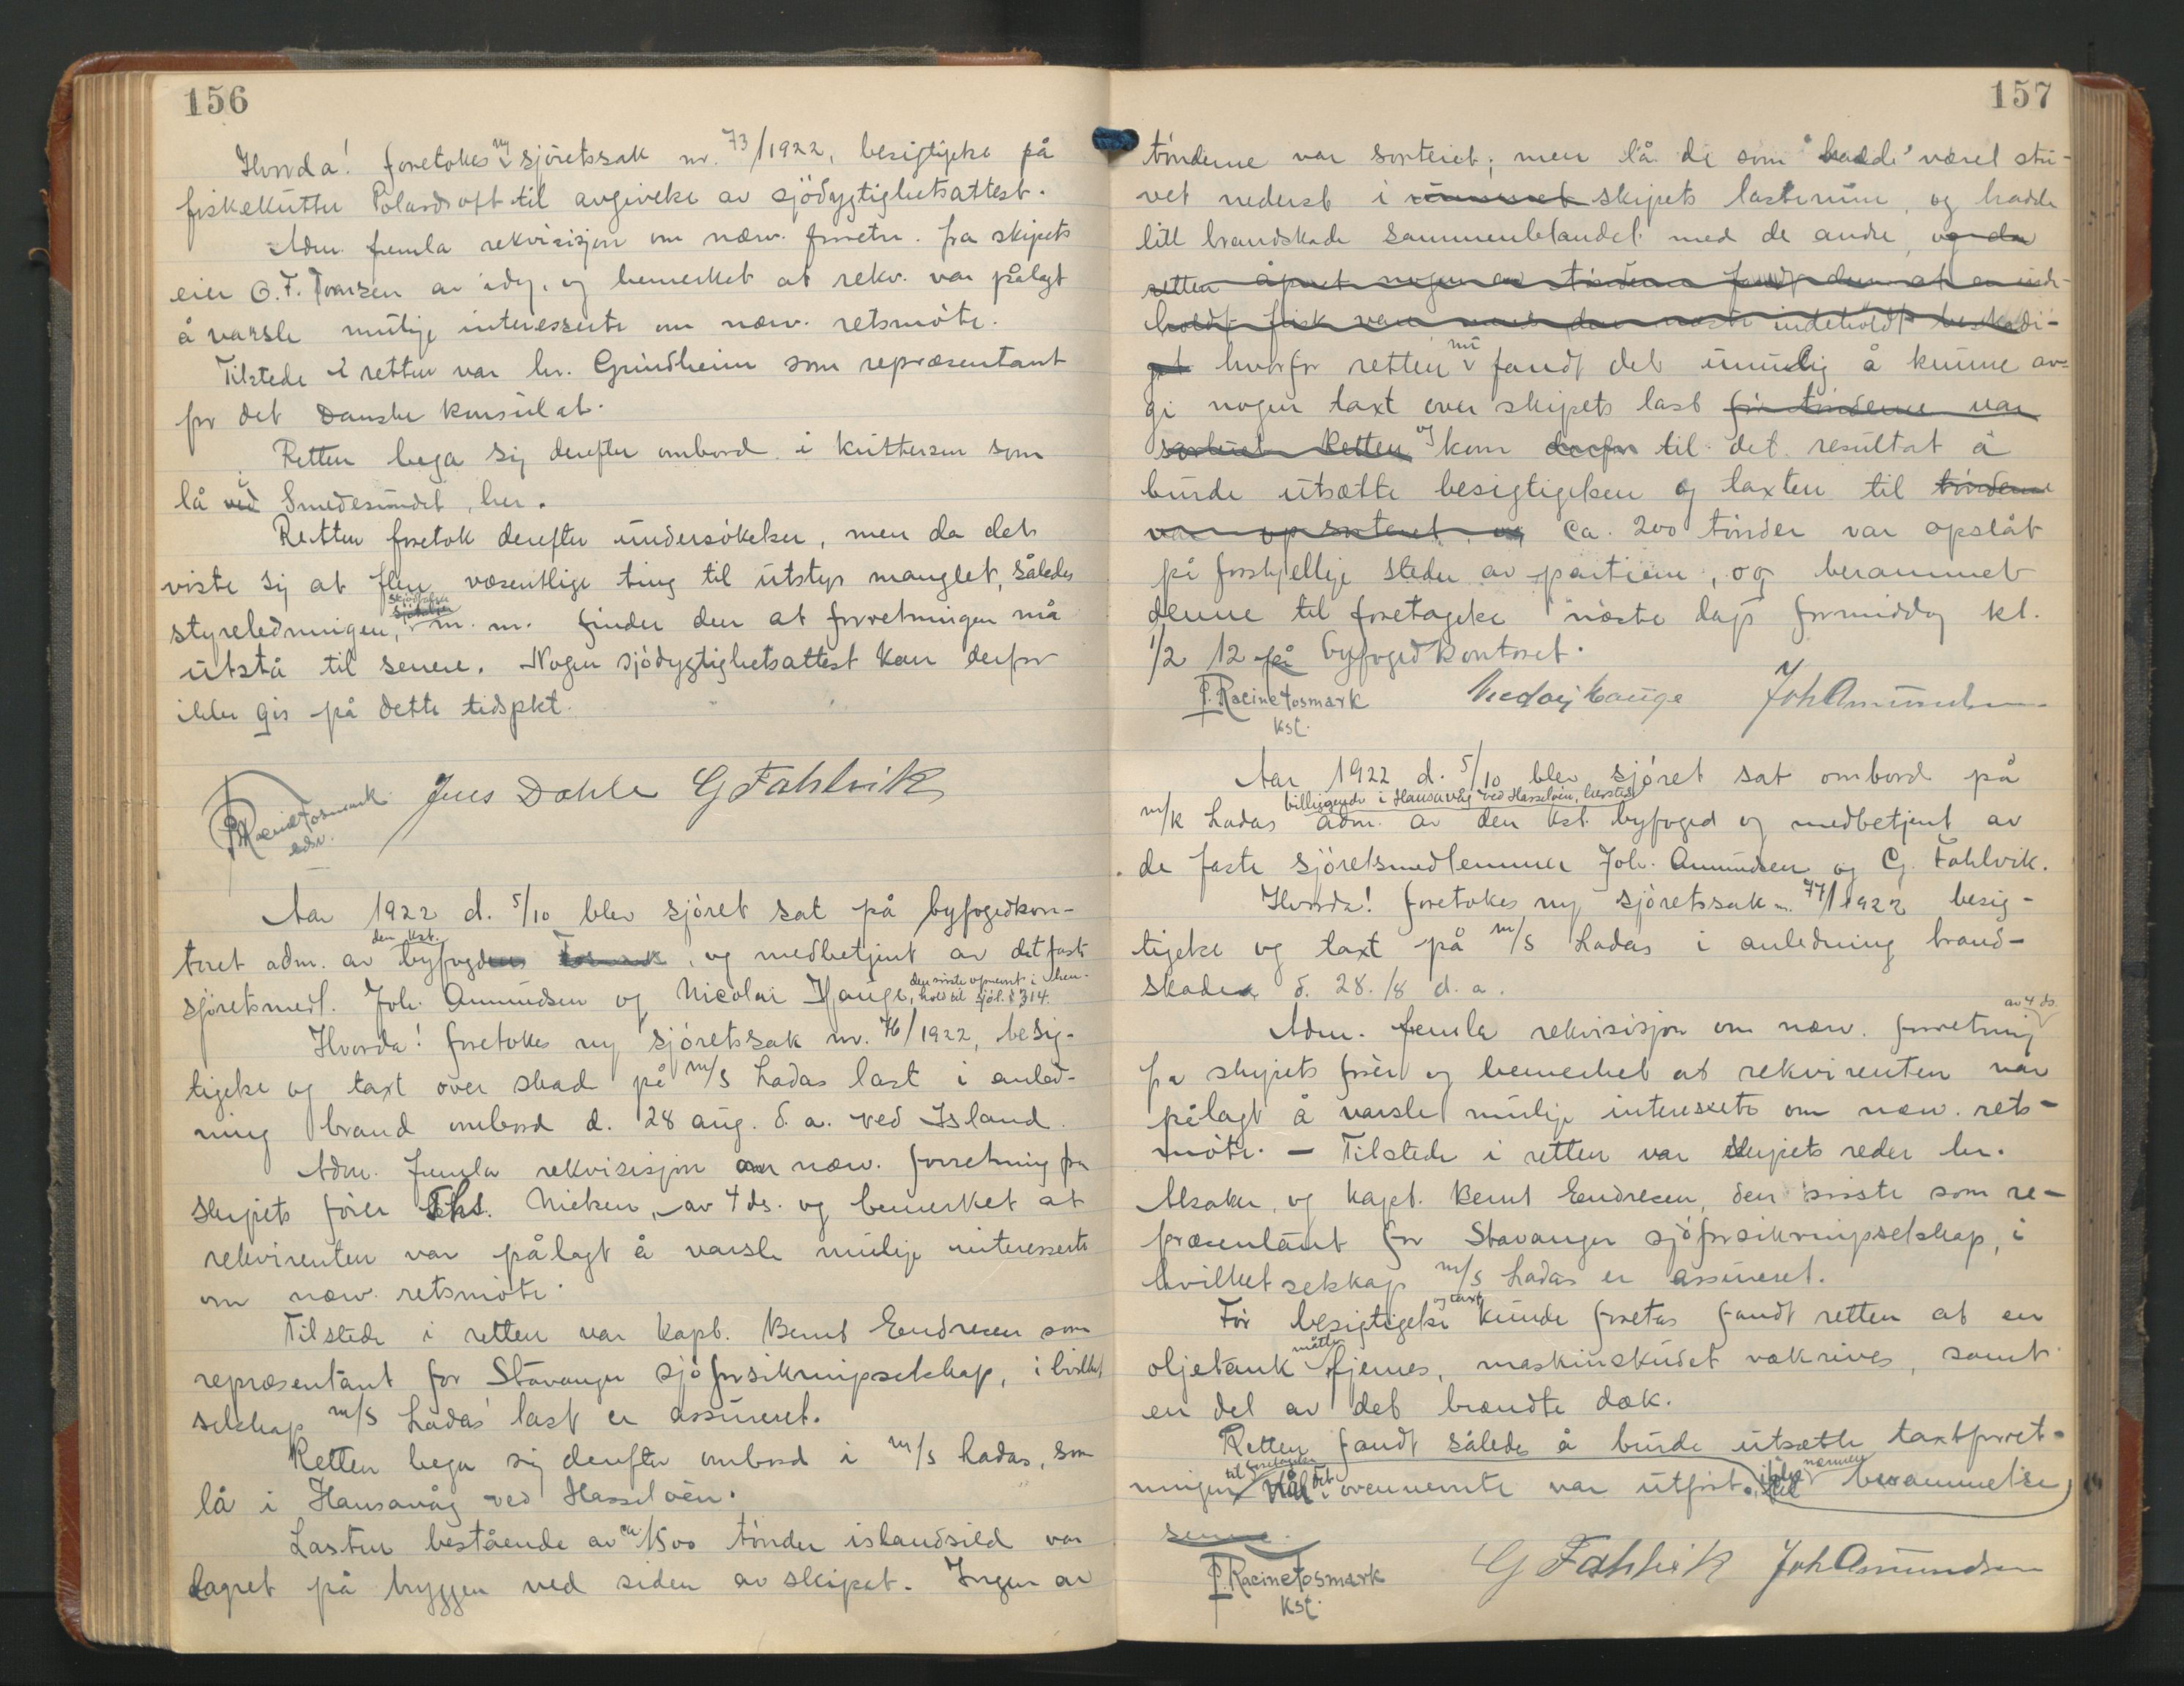 156
Hvorda! foretokes ny sjøretssak nr. 73/1922, besigtigelse på
fiskekutter til avgivelse av sjödygtighetsattest.
Adm. femla rekvisisjon om nærv. forretn. fra skipets
eier O. F. Ivarsen av idag, og bemerket at rekv. var pålagt
å varsle mulige interesserte om nærv. retsmöte.
Tilstede i retten var hr. Grindheim som repræsentant
for det Danske konsulat.
Retten bega sig derefter ombord i kutteren som
lå ved Smedesundet, her.
Retten foretok derefter undersökelser, men da det
viste sig at flere væsentlige ting til utstyr manglet, således
styreledningen, m. m. finder den at forretningen må
utstå til senere. Nogen sjödygtighetsattest kan derfor
ikke gis på dette tidspkt.
P. Racine Fosmark
edsv.
Jens Dahle G Fahlvik
Aar 1922 d. 5/10 blev sjöret sat på byfogedkon-
toret adm. av den kst. byfogden Fosmark, og medbetjent av det faste
sjöretsmedl. Joh. Amundsen og Nicolai Hauge, den siste opnevnt i hen-
hold til sjöl. § 314.
Hvorda! foretokes ny sjöretssak nr. 76/1922, besig-
tigelse og taxt over skade på m/s Ladas last i anled-
ning brand ombord d. 28 aug. d. a. ved Island.
Adm. femla rekvisisjon om nærv. forretning fra
skipets förer Nielsen, av 4 ds. og bemerket at
rekvirenten var pålagt å varsle mulige interesserte
om nærv. retsmöte.
Tilstede i retten var kapt. Bernt Endresen som
repræsentant for Stavanger sjöforsikringsselskap, i hvilket
selskap m/s Ladas last er assureret.
Retten bega sig derefter ombord i m/s Ladas, som
lå i Hansavåg ved Hasselöen.
Lasten bestående av ca. 1500 tönder islandsild var
lagret på bryggen ved siden av skipet. Ingen av
157
tönderne var sorteret; men lå de som hadde været stu-
vet nederst i rummet skipets lasterum, og hadde
litt brandskade sammenblandet med de andre, og da
retten åpnet nogen av tönderne fandt den at en inde-
holdt fisk vare mens den næste indeholdt beskadi-
get hvorfor retten nu fandt det umulig å kunne av-
gi nogen taxt over skipets last för tönderne var
sorteret Retten og kom derfor til det resultat å
burde utsætte besigtigelsen og taxten til tönderne
var opsorteret, og ca. 200 tönder var opslåt
på forskjellige steder av partiene, og berammet
denne til foretagelse næste dags formiddag kl.
1/2 12 på byfogedkontoret.
P. Racine Fosmark
kst.
Nicolaj Hauge Joh Amundsen
Aar 1922 d. 5/10 blev sjöret sat ombord på
m/k Ladas billiggende i Hansavåg ved Hasselöen, hersteds adm. av den kst. byfoged og medbetjent av
de faste sjöretsmedlemmer Joh. Amundsen og G. Fahlvik.
Hvorda! foretokes ny sjöretssak n. 77/1922 besig-
tigelse og taxt på m/s Ladas i anledning brand-
skade d. 28./8 d. a.
Adm. femla rekvisisjon om nærv. forretning av 4 ds.
fra skipets förer og bemerket at rekvirenten var
pålagt å varsle mulige interesserte om nærv. rets-
möte. — Tilstede i retten var skipets reder hr.
og kapt. Bernt Endresen, den sisste som re-
præsentant for Stavanger sjöforsikringsselskap, i
hvilket selskap m/s Ladas er assureret.
För besigtigelse og taxt kunde foretas fandt retten at en
oljetank måtte fjernes, maskinskudet vækrives, samt
en del av det brændte dæk.
Retten fandt således å burde utsætte taxtforret-
ningen til foretagelse når det ovennevnte var utfört. nærmere berammelse
senere.
P. Racine Fosmark
kst.
G Fahlvik Joh Amundsen